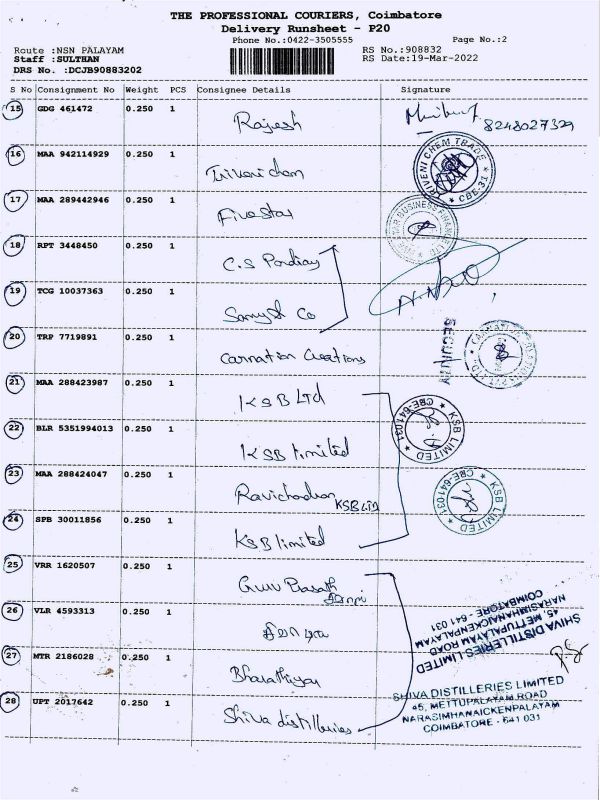 THE PROFESSIONAL COURIERS, Coimbatore
Delivery Runsheet - P20
Phone No.:0422-3505555 Page No.:2
Route :NSN PALAYAM RS No.:908832
Staff :SULTHAN RS Date:19-Mar-2022
DRS No. :DCJB90883202
S No Consignment No Weight PCS Consignee Details Signature
15 GDG 461472 0.250 1 Rajesh 8248027329
16 MAA 942114929 0.250 1 Triveni chem TRIVENI CHEM TRADE CBE
17 MAA 289442946 0.250 1 Five star BUSINESS
18 RPT 3448450 0.250 1 C.S Pandiay
19 TCG 10037363 0.250 1 Co
20 TRP 7719891 0.250 1 Carnation Creations SECURITY
21 MAA 288423987 0.250 1 KSB LTD KSB LIMITED CBE-641031
22 BLR 5351994013 0.250 1 KSB limited
23 MAA 288424047 0.250 1 Ravichadran KSB LTD KSB LIMITED CBE-641031
24 SPB 30011856 0.250 1 KSB limited
25 VRR 1620507 0.250 1 Guru Prasath
26 VLR 4593313 0.250 1
SHIVA DISTILLERIES LIMITED
45, METTUPALAYAM ROAD
NARASIMHANAICKENPALAYAM
COIMBATORE - 641 031
27 MTR 2186028 0.250 1 Bharathiyar
28 UPT 2017642 0.250 1 Shiva distilleries
SHIVA DISTILLERIES LIMITED
45, METTUPALAYAM ROAD
NARASIMHANAICKENPALAYAM
COIMBATORE - 641 031